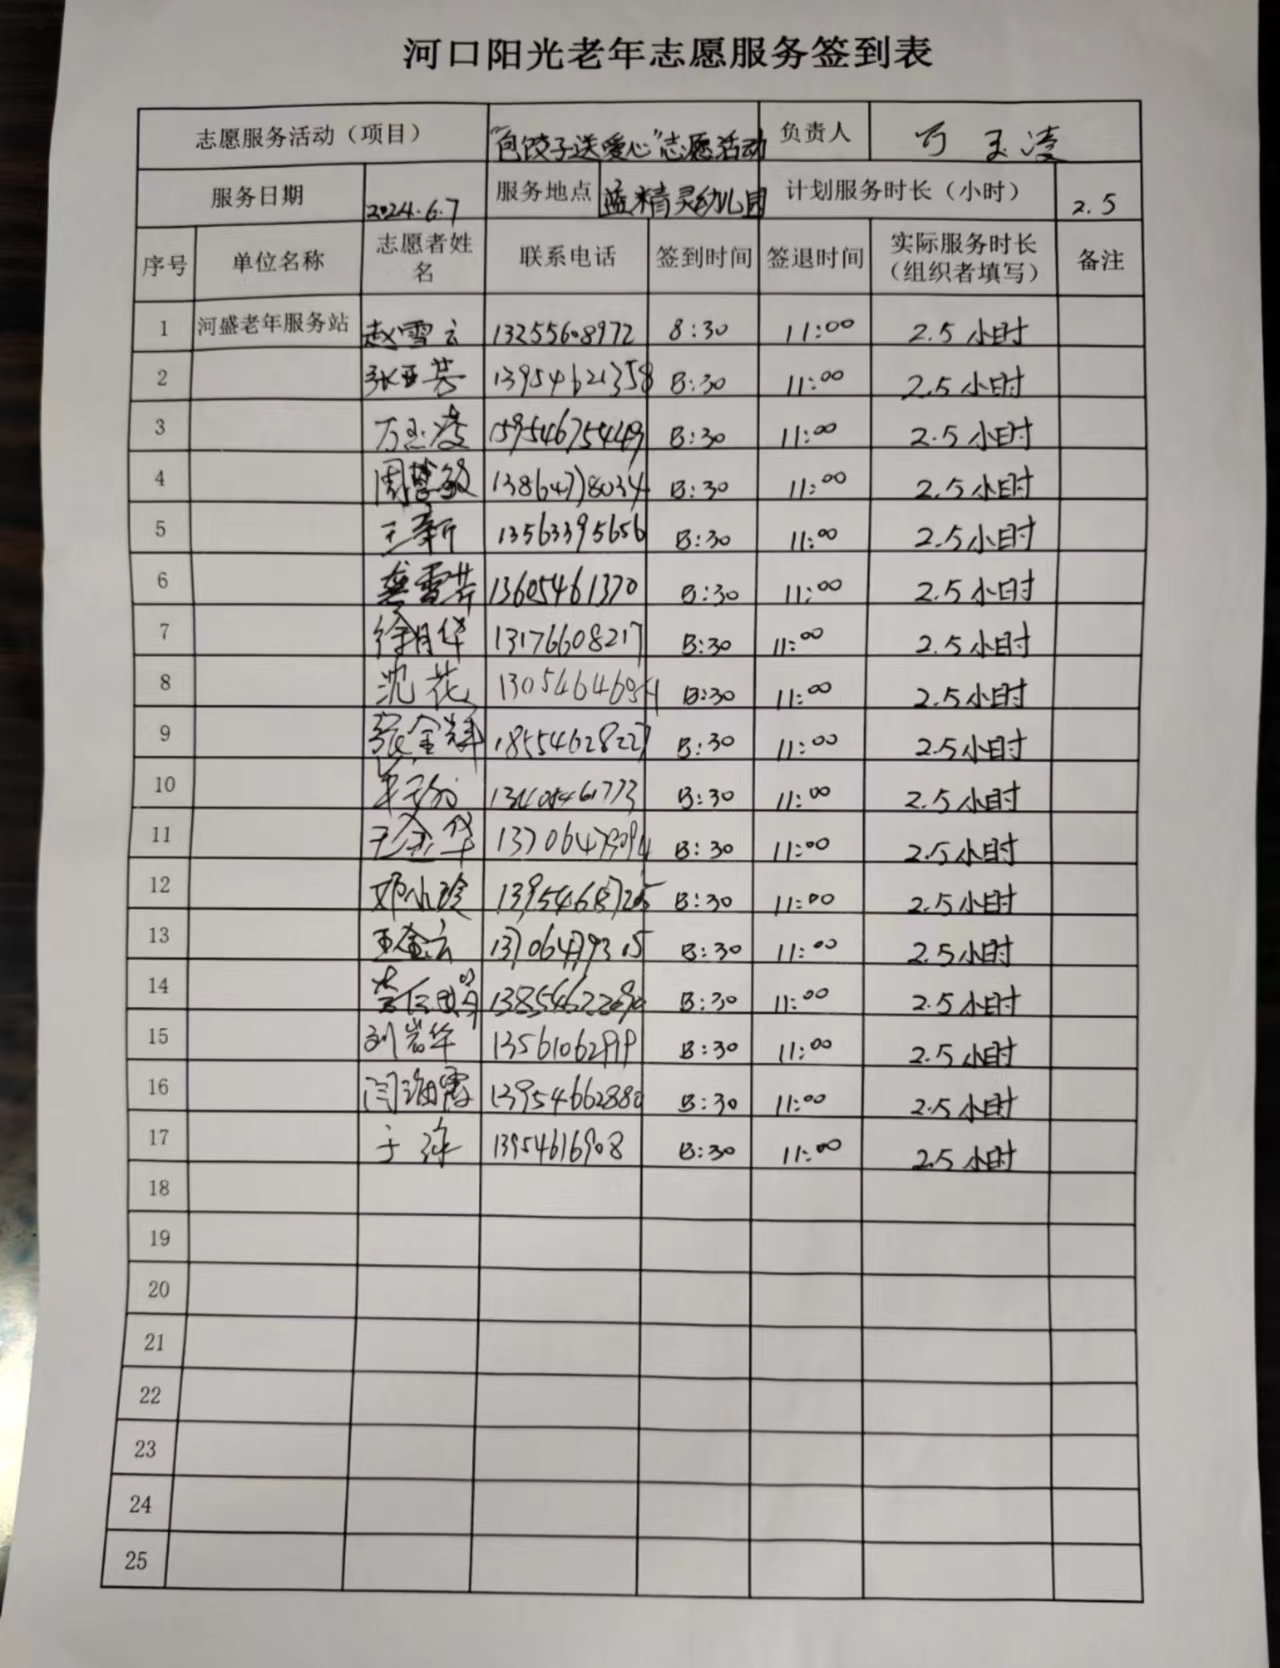 河口阳光老年志愿服务签到表
志愿服务活动（项目） "包饺子送爱心"志愿活动 负责人 万玉凌
服务日期 2024.6.7 服务地点 蓝精灵幼儿园 计划服务时长（小时） 2.5
序号 单位名称 志愿者姓名 联系电话 签到时间 签退时间 实际服务时长（组织者填写） 备注
1 河盛老年服务站 赵雪云 13255608972 8:30 11:00 2.5小时
2 张亚芬 13954621358 8:30 11:00 2.5小时
3 万玉凌 15954675449 8:30 11:00 2.5小时
4 周慧敏 13864778034 8:30 11:00 2.5小时
5 王新 13563395656 8:30 11:00 2.5小时
6 龚雪芹 13605461370 8:30 11:00 2.5小时
7 徐月华 13176608217 8:30 11:00 2.5小时
8 沈花 8:30 11:00 2.5小时
9 张金辉 18554628227 8:30 11:00 2.5小时
10 8:30 11:00 2.5小时
11 王金华 8:30 11:00 2.5小时
12 邓小玲 8:30 11:00 2.5小时
13 王金云 13706479315 8:30 11:00 2.5小时
14 8:30 11:00 2.5小时
15 刘岩华 13561062919 8:30 11:00 2.5小时
16 闫海霞 13954662880 8:30 11:00 2.5小时
17 于 13954616908 8:30 11:00 2.5小时
18
19
20
21
22
23
24
25